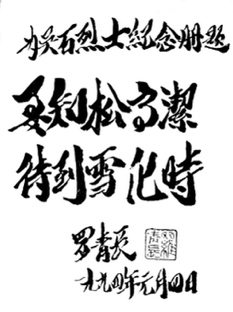 为吴石烈士紀念册题
要知松高潔
待到雪化時
罗青长
一九九四年元月四日